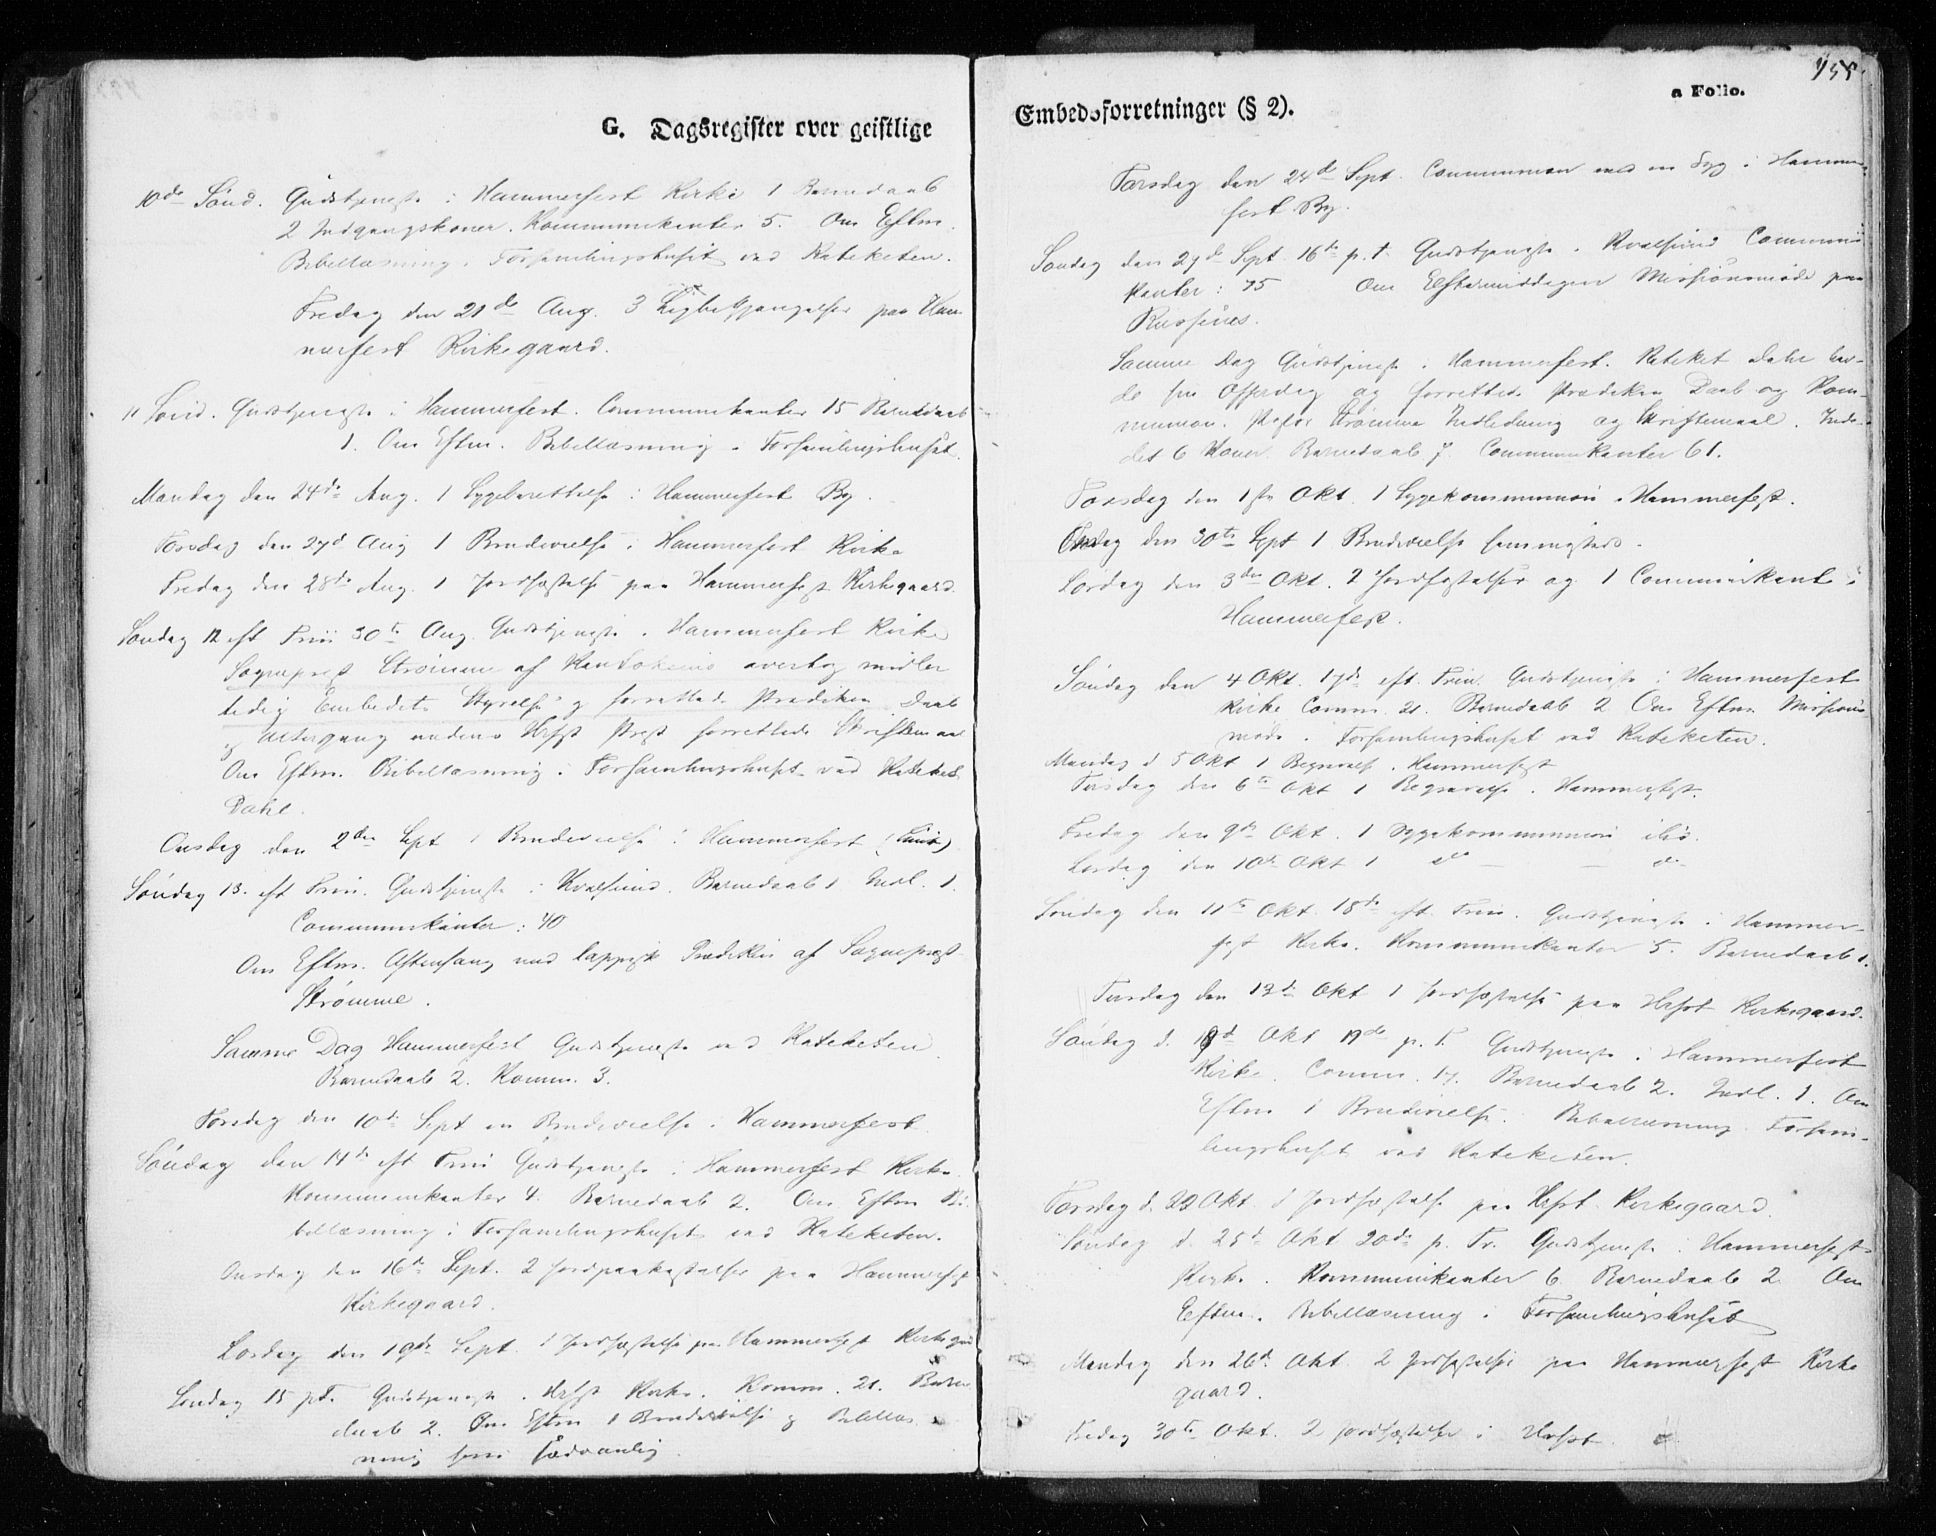 G. Dagsregister over geistlige
10de Sønd. Gudstjeneste i Hammerfest Kirke 1 Barnedaab
2 Indgangskoner. Kommunikanter 5. Om Eftm.
Bibellæsning i Forsamlingshuset ved Kateketen.
Fredag den 21de Aug. 3 Ligbegjængelser paa Ham-
merfest Kirkegaard.
11 Sønd. Gudstjeneste i Hammerfest. Communikanter 15 Barnedaab
1. Om Eftm. Bibellæsning i Forsamlingshuset.
Mandag den 24de Aug. 1 Sygeberettelse i Hammerfest By.
Torsdag den 27d Aug 1 Brudevielse i Hammerfest Kirke
Fredag den 28de Aug. 1 Jordfæstelse paa Hammerfest Kirkegaard.
Søndag 12 eft Trin 30te Aug. Gudstjeneste i Hammerfest Kirke
Sognepræst Strømme af Kautokeino overtog midler
tidig Embedets Styrelse og forrettede Prædiken Daab
og Altergang medens Hfst Prest forrettede Skriftemaal
Om Eftm. Bibellæsning i Forsamlingshuset ved Kateket
Dahl.
Onsdag den 2den Sept 1 Brudevielse i Hammerfest
Søndag 13. eft Trin. Gudstjeneste i Kvalsund. Barnedaab 1 Indl. 1.
Communikanter: 40
Om Eftm. Aftensang med lappisk Prædiken af Sognepræst
Strømme.
Samme Dag Hammerfest Gudstjeneste ved Kateketen
Barnedaab 2. Komm. 3.
Torsdag den 10de Sept en Brudevielse i Hammerfest
Søndag den 14de eft Trin Gudstjeneste i Hammerfest Kirke.
Kommunikanter 4. Barnedaab 2. Om Eftm Bi-
bellæsning i Forsamlingshuset ved Kateketen.
Onsdag den 16de Sept. 2 Jordpaakastelser paa Hammerfest
Kirkegaard.
Lørdag den 19de Sept. 1 Jordfæstelse paa Hammerfest Kirkegd
Søndag 15 p.T. Gudstjeneste i Hfst Kirke. Komm. 21. Barne
daab 2. Om Eftm 1 Brudevielse og Bibellæs
ning som sædvanlig.
155.
a Folio.
Embedsforretninger (§ 2).
Torsdag den 24de Sept. Communion med en Syg i Hammer-
fest By.
Søndag den 27de Sept. 16de p. t. Gudstjeneste i Kvalsund Communi-
kanter: 75 Om Eftermiddagen Missionsmøde paa
Russenes.
Samme Dag Gudstjeneste i Hammerfest. Kateket Dahl hav-
de sin Offerdag og forrettede Prædiken Daab og Kom-
munion. Strømme Indledning og Skriftemaal. Indle-
det 6 Koner. Barnedaab 7. Communikanter 61.
Torsdag den 1ste Okt. 1 Sygekommunion i Hammerfest.
Onsdag den 30te Sept 1 Brudevielse sammesteds.
Lørdag den 3den Okt. 2 Jordfæstelser og 1 Communikant i
Hammerfest.
Søndag den 4 Okt. 17de eft. Trin. Gudstjeneste i Hammerfest
Kirke Comm. 21. Barnedaab 2 Om Eftm Missions-
møde i Forsamlingshuset ved Kateketen.
Mandag d 5 Okt 1 Begravelse i Hammerfest
Tirsdag den 6te Okt 1 Begravelse i Hammerfest.
Fredag den 9de Okt. 1 Sygekommunion ibid.
Lørdag den 10de Okt 1 do — — do
Søndag den 11te Okt. 18de eft. Trin. Gudstjeneste i Hammer-
fest Kirke. Kommunikanter 5. Barnedaab 1.
Tirsdag den 13de Okt 1 Jordfæstelse paa Hfst Kirkegaard.
Søndag d. 18d Okt 19de p. T. Gudstjeneste i Hammerfest
Kirke. Comm. 17. Barnedaab 2. Indl. 1. Om
Eftm 1 Brudevielse. Bibellæsning i Forsam-
lingshuset ved Kateketen.
Torsdag d. 22 Okt. 1 Jordfæstelse paa Hfst Kirkegaard.
Søndag d. 25de Okt 20de p. Tr. Gudstjeneste i Hammerfest
Kirke. Kommunikanter 6 Barnedaab 2. Om
Eftm. Bibellæsning i Forsamlingshuset
Mandag den 26d Okt. 2 Jordfæstelser paa Hammerfest Kirke
gaard.
Fredag 30te Okt. 2 Jordfæstelser i Hfst.